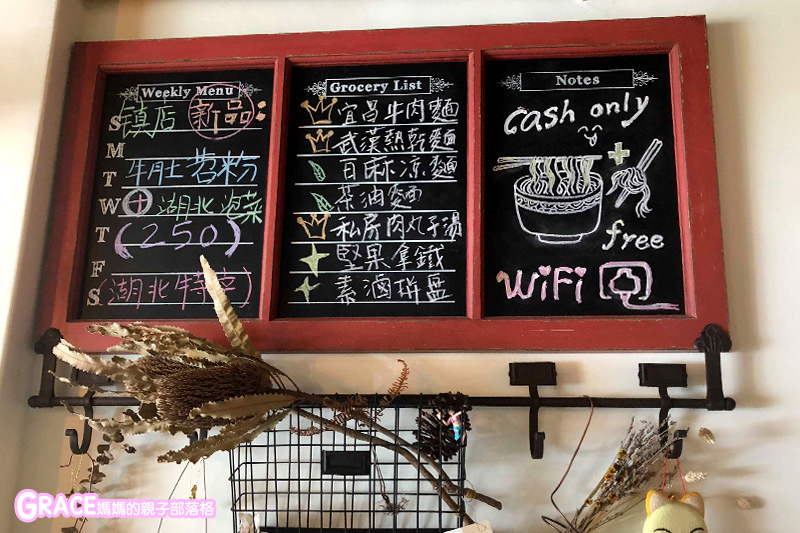 Weekly Menu
鎮店 新品:
S
M
T
W
T
F
S
牛肚苕粉
+湖北泡菜
(250)
(湖北特產)
Grocery List
宜昌牛肉麵
武漢熱乾麵
百麻涼麵
茶油麵
私房肉丸子湯
堅果拿鐵
素滷拼盤
Notes
cash only
+
free
WiFi
GRACE媽媽的親子部落格